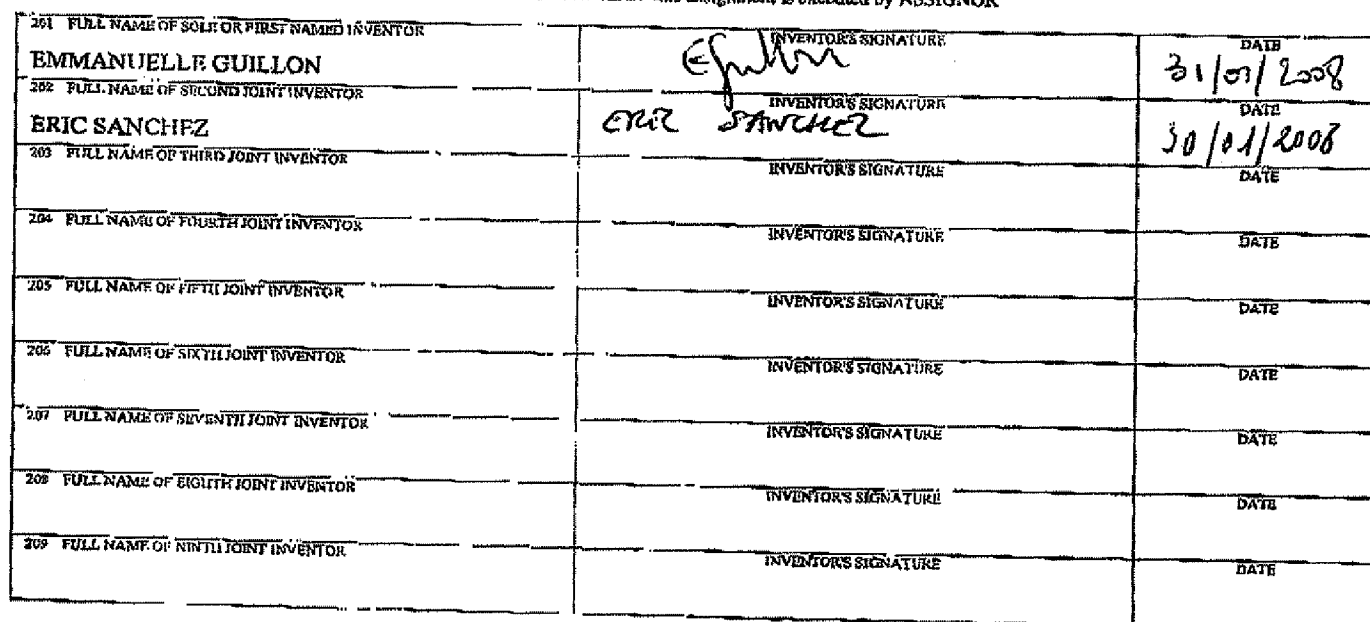 is executed by ASSIGNOR
201 FULL NAME OF SOLE OR FIRST NAMED INVENTOR INVENTOR'S SIGNATURE DATE
EMMANUELLE GUILLON EGuillon 31/01/2008
202 FULL NAME OF SECOND JOINT INVENTOR INVENTOR'S SIGNATURE DATE
ERIC SANCHEZ ERIC SANCHEZ 30/01/2008
203 FULL NAME OF THIRD JOINT INVENTOR INVENTOR'S SIGNATURE DATE
204 FULL NAME OF FOURTH JOINT INVENTOR INVENTOR'S SIGNATURE DATE
205 FULL NAME OF FIFTH JOINT INVENTOR INVENTOR'S SIGNATURE DATE
206 FULL NAME OF SIXTH JOINT INVENTOR INVENTOR'S SIGNATURE DATE
207 FULL NAME OF SEVENTH JOINT INVENTOR INVENTOR'S SIGNATURE DATE
208 FULL NAME OF EIGHTH JOINT INVENTOR INVENTOR'S SIGNATURE DATE
209 FULL NAME OF NINTH JOINT INVENTOR INVENTOR'S SIGNATURE DATE